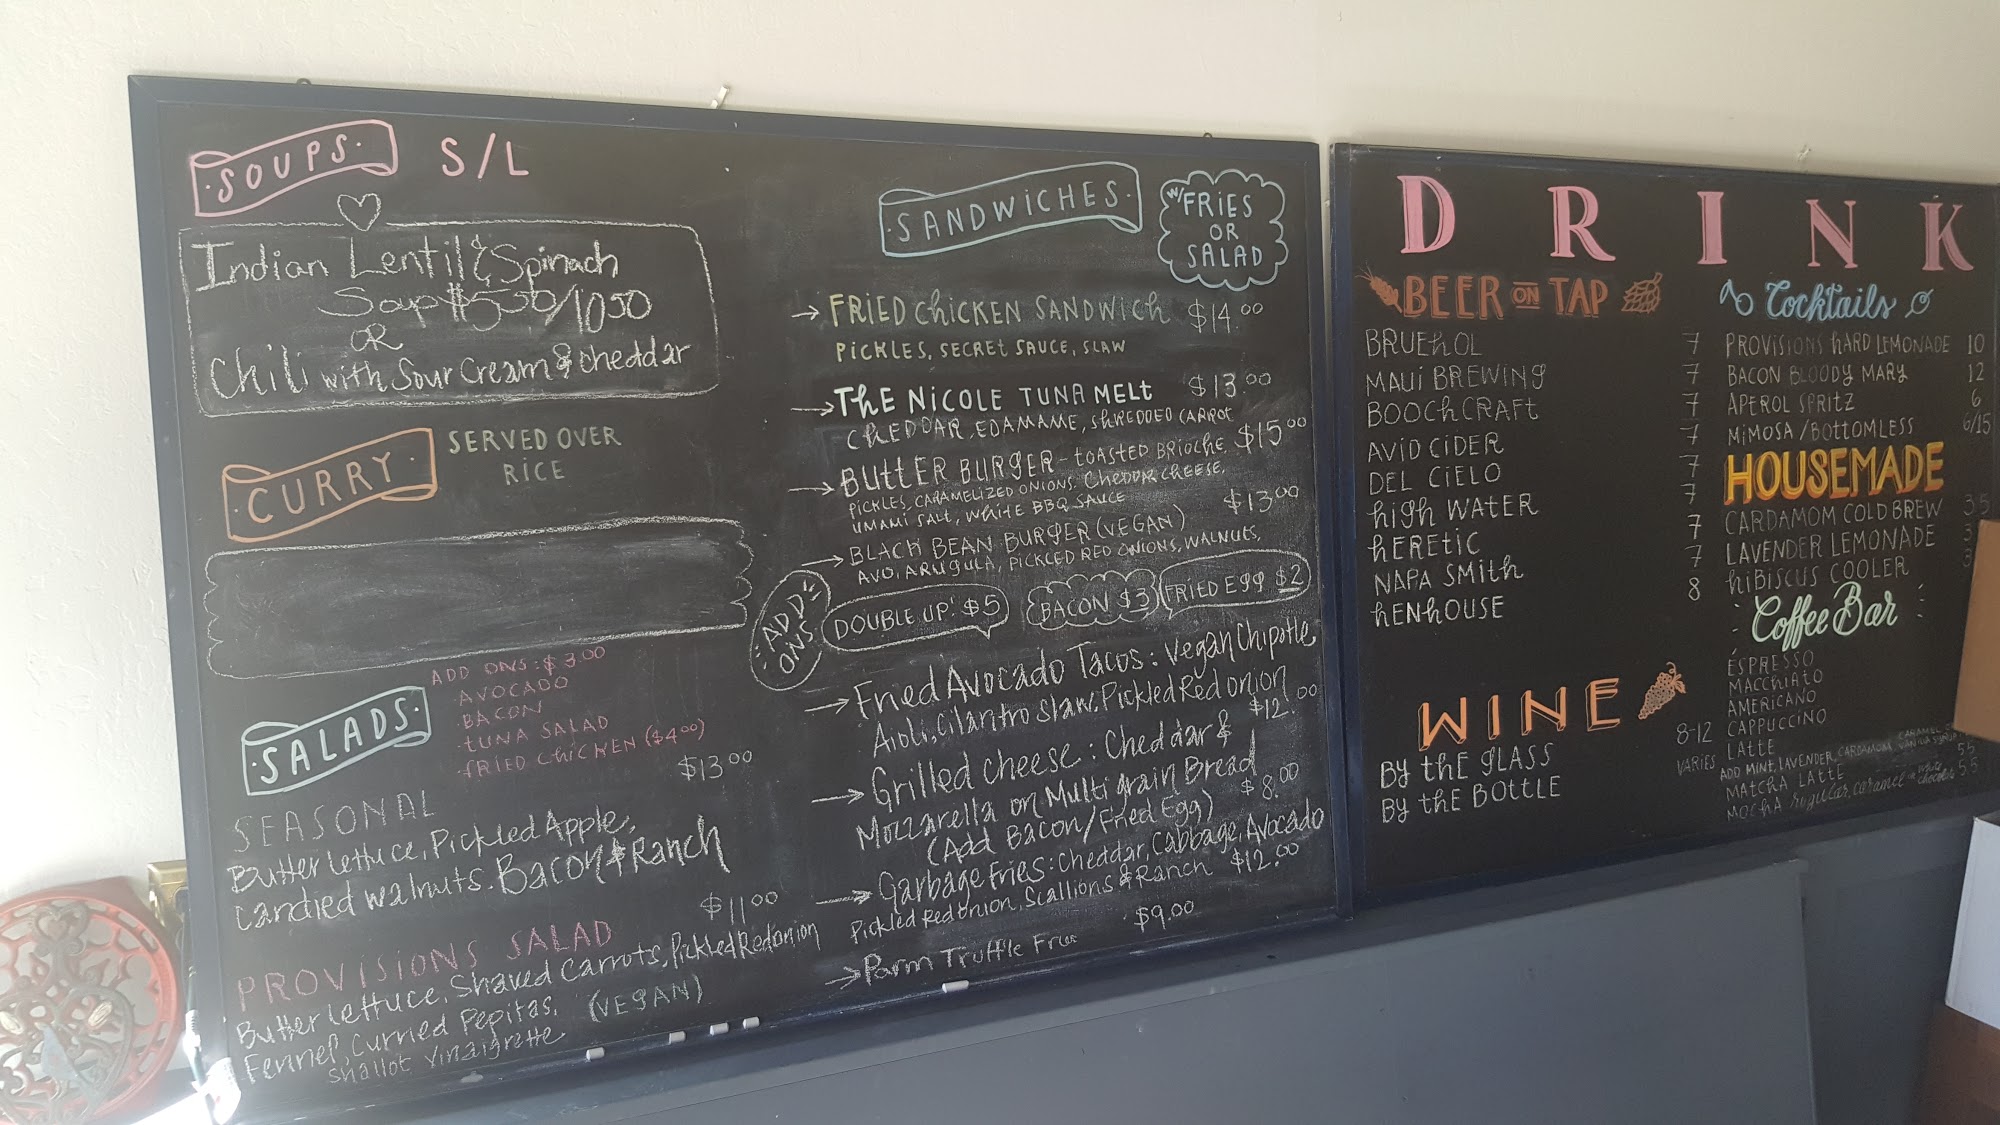 SOUPS S/L
Indian Lentil & Spinach
Soup $5.50/10.50
OR
Chili with Sour Cream & Cheddar
CURRY SERVED OVER
RICE
SALADS
ADD ONS: $3.00
-AVOCADO
-BACON
-TUNA SALAD
-FRIED CHICKEN ($4.00)
SEASONAL $13.00
Butter lettuce, Pickled Apple,
candied walnuts. Bacon & Ranch
PROVISIONS SALAD $11.00
Butter lettuce, Shaved Carrots, Pickled Red onion
Fennel, Curried Pepitas, (VEGAN)
Shallot Vinaigrette
SANDWICHES
W/ FRIES
OR
SALAD
→ FRIED CHICKEN SANDWICH $14.00
PICKLES, SECRET SAUCE, SLAW
→ THE NICOLE TUNA MELT $13.00
CHEDDAR, EDAMAME, SHREDDED CARROT
→ BUTTER BURGER - TOASTED BRIOCHE, $15.00
PICKLES, CARAMELIZED ONIONS, CHEDDAR CHEESE,
UMAMI SALT, WHITE BBQ SAUCE
→ BLACK BEAN BURGER (VEGAN) $13.00
AVO, ARUGULA, PICKLED RED ONIONS, WALNUTS,
ADD ONS
DOUBLE UP $5 BACON $3 FRIED EGG $2
→ Fried Avocado Tacos: Vegan Chipotle
Aioli, Cilantro Slaw, Pickled Red onion $12.00
→ Grilled Cheese: Cheddar &
Mozzarella on Multigrain Bread
(Add Bacon/Fried Egg) $8.00
→ Garbage Fries: Cheddar, Cabbage, Avocado
Pickled Red Onion, Scallions & Ranch $12.00
→ Parm Truffle Fries $9.00
DRINK
BEER ON TAP
BRUEHOL 7
MAUI BREWING 7
BOOCHCRAFT 7
AVID CIDER 7
DEL CIELO 7
HIGH WATER 7
HERETIC 7
NAPA SMITH 7
HENHOUSE 8
WINE
BY THE GLASS 8-12
BY THE BOTTLE VARIES
Cocktails
PROVISIONS HARD LEMONADE 10
BACON BLOODY MARY 12
APEROL SPRITZ 6
MIMOSA/BOTTOMLESS 6/15
HOUSEMADE
CARDAMOM COLD BREW 3.5
LAVENDER LEMONADE 3
HIBISCUS COOLER 3
Coffee Bar
ESPRESSO
MACCHIATO
AMERICANO
CAPPUCCINO
LATTE
ADD MINT, LAVENDER, CARDAMOM, VANILLA SYRUP CARAMEL
MATCHA LATTE
MOCHA regular, caramel or white chocolate 5.5